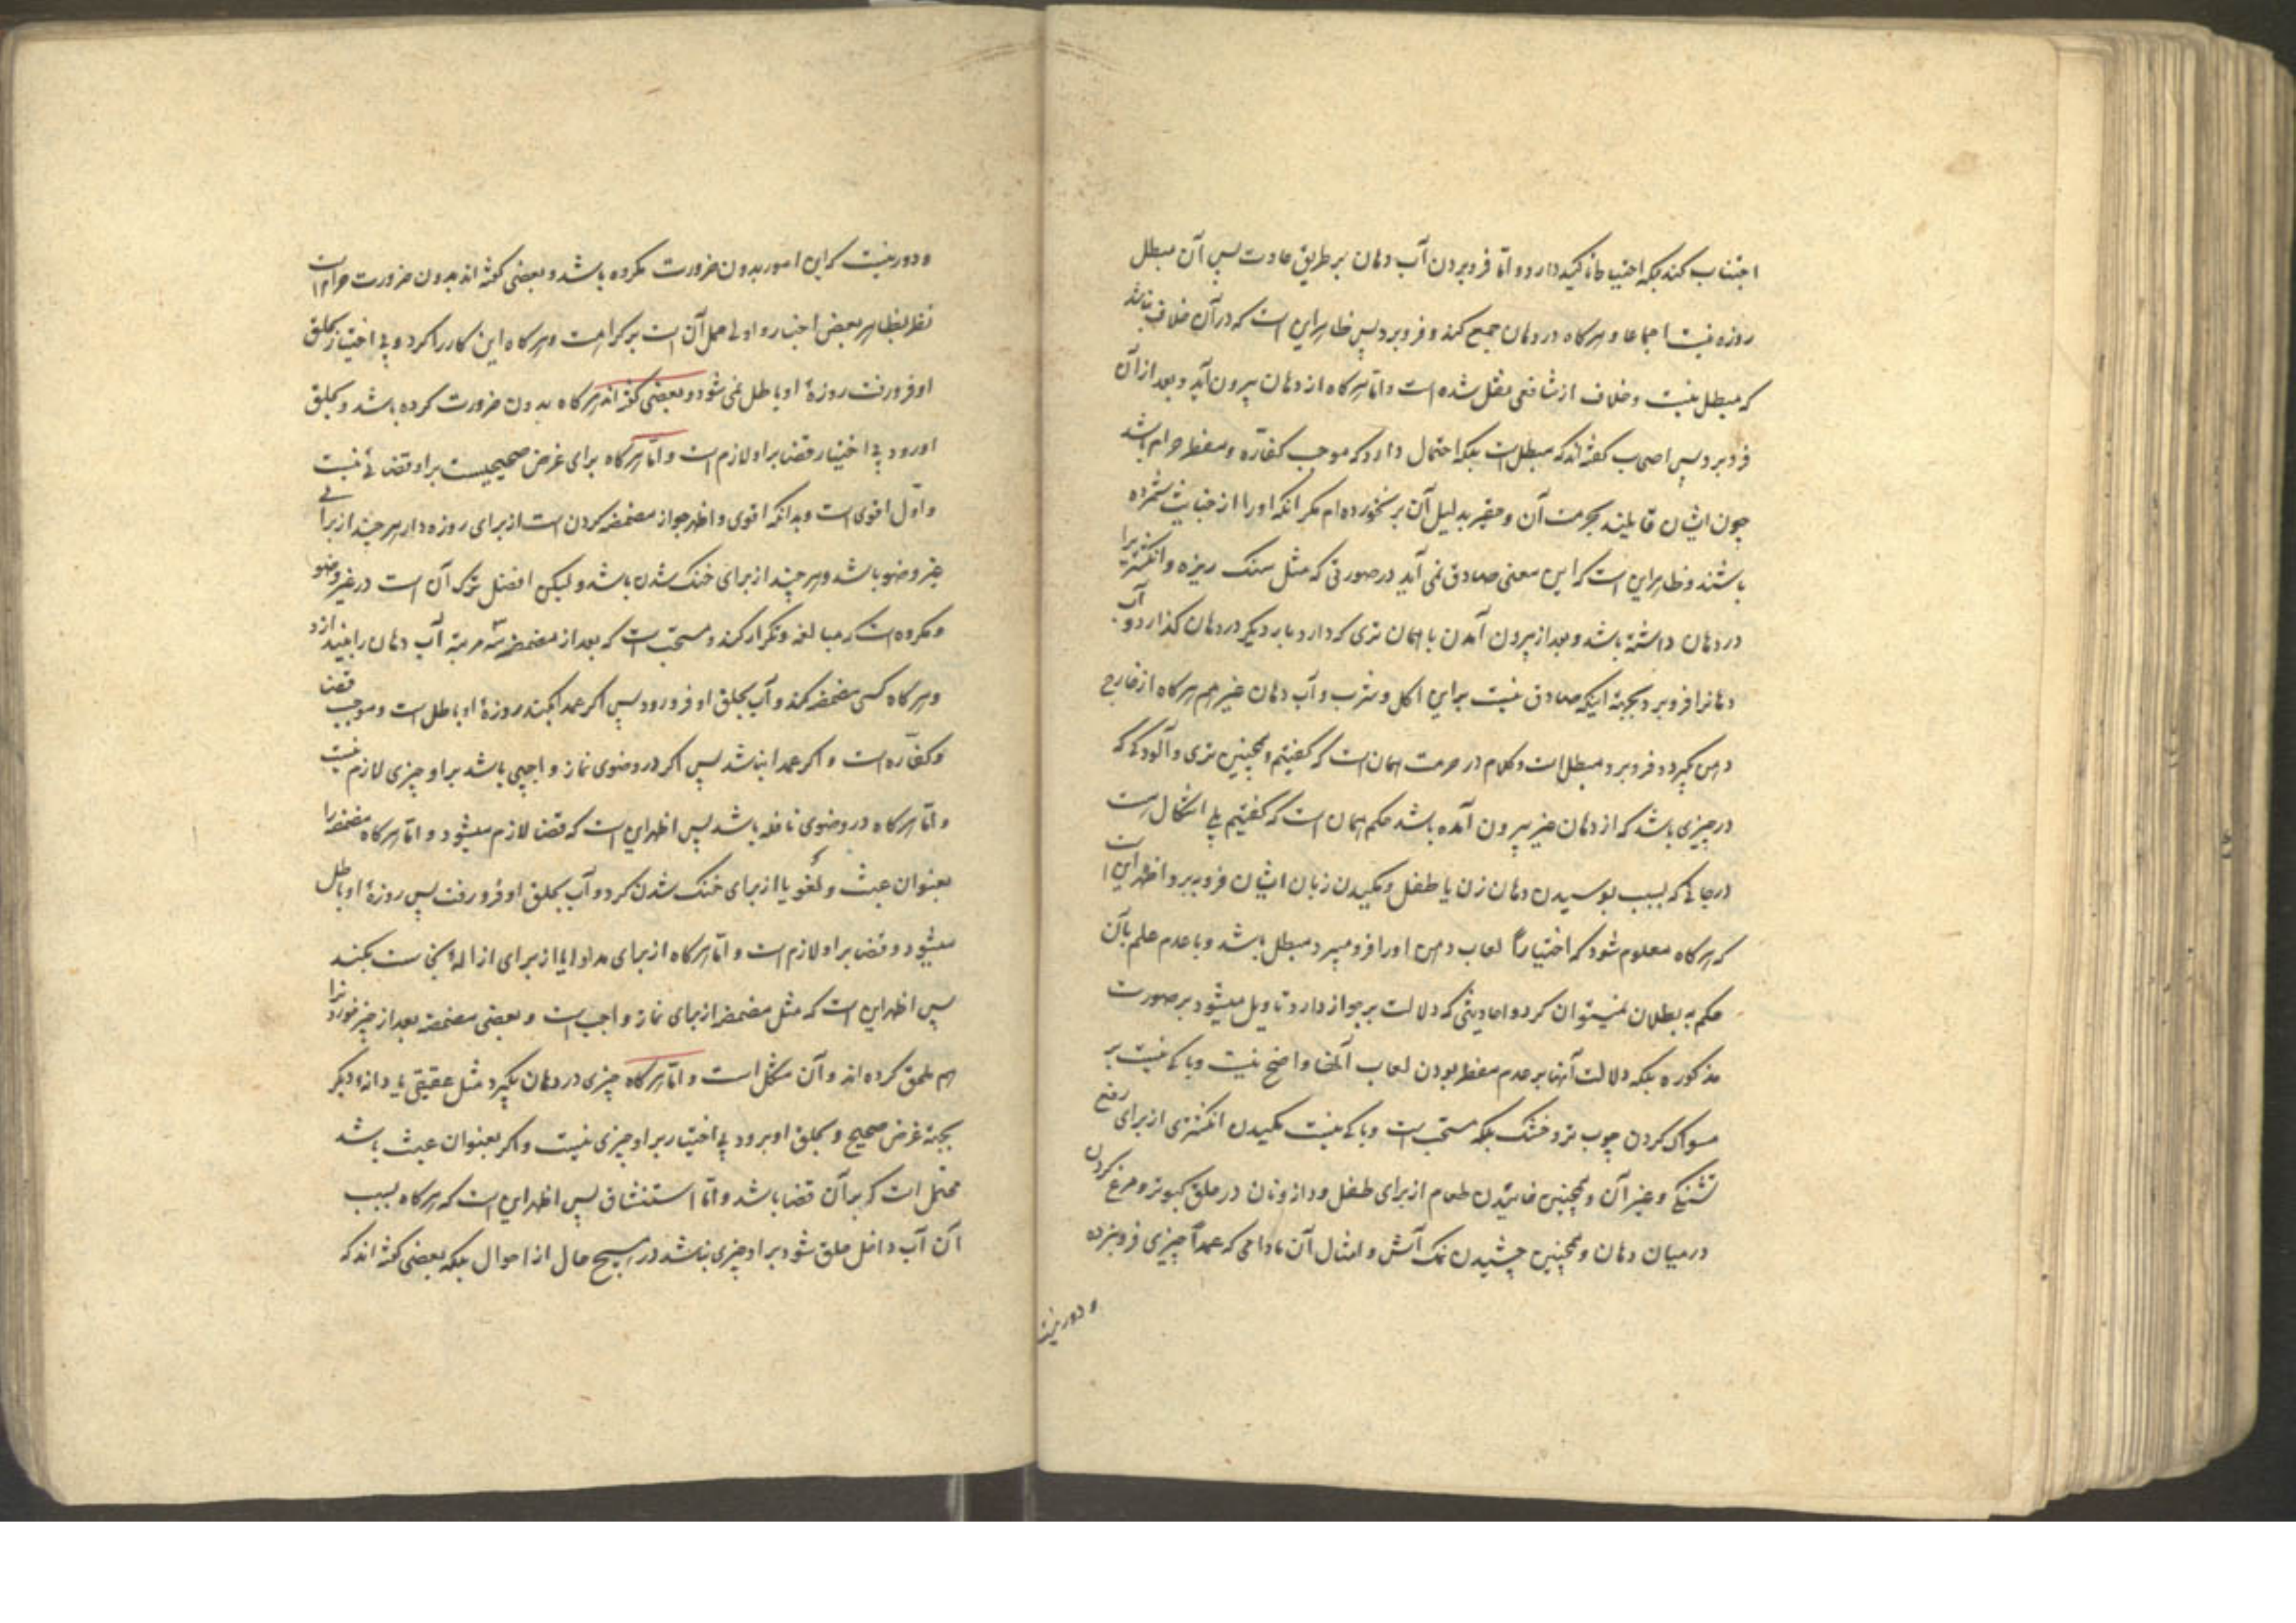 اجتناب کند بلکه احتیاط تاکید دارد و امّا فرو بردن آب دهان بر طریق عادت پس آن مبطل
روزه نیست اجماعا و هرگاه در دهان جمع کند و فرو برد پس ظاهر این است که در آن خلاف نباشد
که مبطل نیست و خلاف از شافعی نقل شده است و امّا هرگاه از دهان بیرون آید و بعد از آن
فرو برد پس اصحاب گفته‌اند که مبطل است بلکه احتمال دارد که موجب کفّاره و مفطر حرام باشد
چون ایشان قایلند بحرمت آن و حقیر بدلیل آن بر نخورده‌ام مگر آنکه او را از خبایث شمرده
باشند و ظاهر این است که این معنی صادق نمی آید در صورتی که مثل سنک ریزه و انگشتر را
در دهان داشته باشد و بعد از بیرون آمدن با همان تری که دارد بار دیگر در دهان گذارد و آب
دهانرا فرو برد بجهة اینکه صادق نیست بر این اکل و شرب و آب دهان غیر هم هرگاه از خارج
دهن گیرد و فرو برد مبطل است و کلام در حرمت همان است که گفتیم و همچنین تری و آلودگی که
در چیزی باشد که از دهان غیر بیرون آمده باشد حکم همان است که گفتیم بلی اشکال هست
در جائی که بسبب بوسیدن دهان زن یا طفل و مکیدن زبان ایشان فرو ببرد و اظهر این است
که هرگاه معلوم شود که اختیاراً لعاب دهن او را فرو میبرد مبطل باشد و با عدم علم بآن
حکم به بطلان نمیتوان کرد و احادیثی که دلالت بر جواز دارد تاویل میشود بر صورت
مذکوره بلکه دلالت آنها بر عدم مفطر بودن لعاب آنها واضح نیست و باکی نیست بر
مسواک کردن چوب تر و خشک بلکه مستحب است و باکی نیست مکیدن انگشتری از برای رفع
تشنگی و غیر آن و همچنین خائیدن طعام از برای طفل و دانه و نان در حلق کبوتر و مرغ کردن
در میان دهان و همچنین چشیدن نمک آش و امثال آن مادامی که عمداً چیزی فرو نبرده
و دور نیست
و دور نیست که این امور بدون ضرورت مکروه باشد و بعضی گفته‌اند بدون ضرورت حرام است
نظر بظاهر بعض اخبار و اولی حمل آن است بر کراهت و هرگاه این کار را کرد و بی اختیار بحلق
او فرو رفت روزهٔ او باطل نمی شود و بعضی گفته‌اند هرگاه بدون ضرورت کرده باشد و بحلق
او رود بی اختیار قضا بر او لازم است و امّا هرگاه برای غرض صحیحیست بر او قضائی نیست
و اوّل اقوی است و بدانکه اقوی و اظهر جواز مضمضه کردن است از برای روزه دار هر چند از برای
غیر وضو باشد و هر چند از برای خنک شدن باشد و لیکن افضل ترک آن است در غیر وضو
و مکروه است که مبالغه و تکرار کند و مستحب است که بعد از مضمضه سه مرتبه آب دهان را بیندازد
و هرگاه کسی مضمضه کند و آب بحلق او فرو رود پس اگر عمدا بکند روزهٔ او باطل است و موجب قضا
و کفّاره است و اگر عمدا نباشد پس اگر در وضوی نماز واجبی باشد بر او چیزی لازم نیست
و امّا هرگاه در وضوی نافله باشد پس اظهر این است که قضا لازم میشود و امّا هرگاه مضمضه را
بعنوان عبث و لغو یا از برای خنک شدن کرد و آب بحلق او فرو رفت پس روزهٔ او باطل
میشود و قضا بر او لازم است و امّا هرگاه از برای مداوا یا از برای ازالهٔ نجاست بکند
پس اظهر این است که مثل مضمضه از برای نماز واجب است و بعضی مضمضه بعد از چیز خوردن را
هم ملحق کرده‌اند و آن مشکل است و امّا هرگاه چیزی در دهان بگیرد مثل عقیقی یا دانه دیگر
بجهة غرض صحیح و بحلق او برود بی اختیار بر او چیزی نیست و اگر بعنوان عبث باشد
محتمل است که بر آن قضا باشد و امّا استنشاق پس اظهر این است که هرگاه بسبب
آن آب داخل حلق شود بر او چیزی نباشد در هیچ حال از احوال بلکه بعضی گفته‌اند که